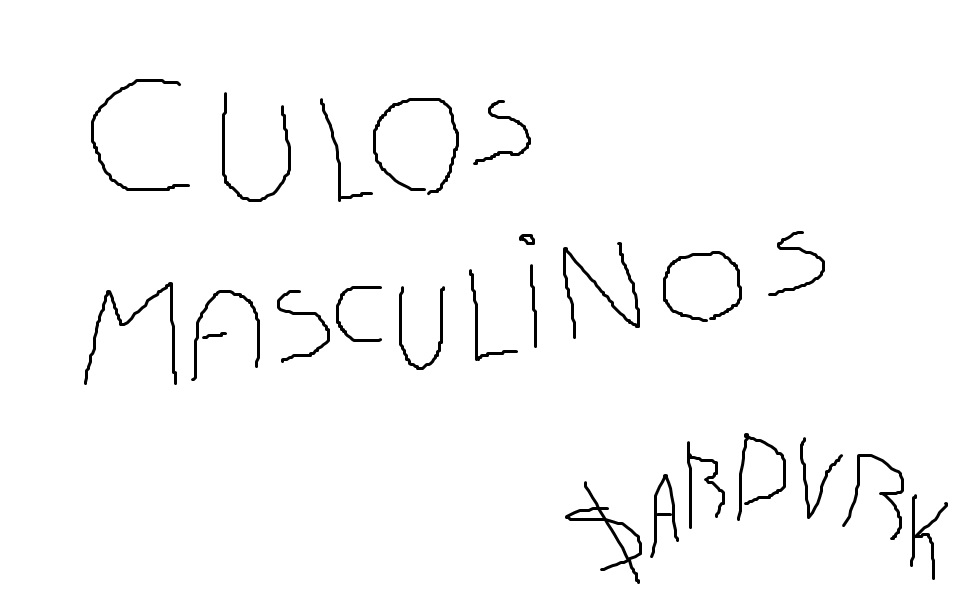 CULOS
MASCULiNOS
$ARDVRK